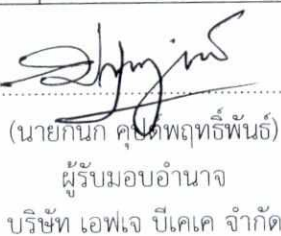 (นายกนก คุปต์พฤทธิ์พันธ์)
ผู้รับมอบอำนาจ
บริษัท เอฟเจ บีเคเค จำกัด